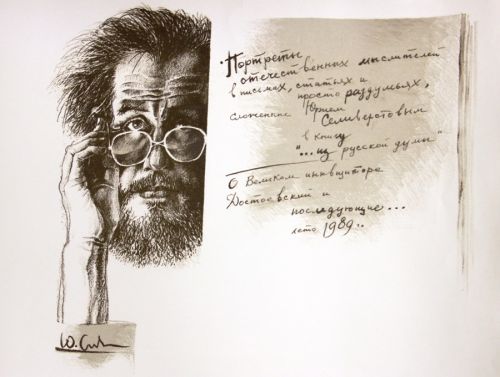 Портреты
отечественных мыслителей
в письмах, статьях и
просто раздумьях,
сложенные Юрием
Селиверстовым
в книгу
"...из русской думы"
О Великом инквизиторе
Достоевский и
последующие...
лето 1989..